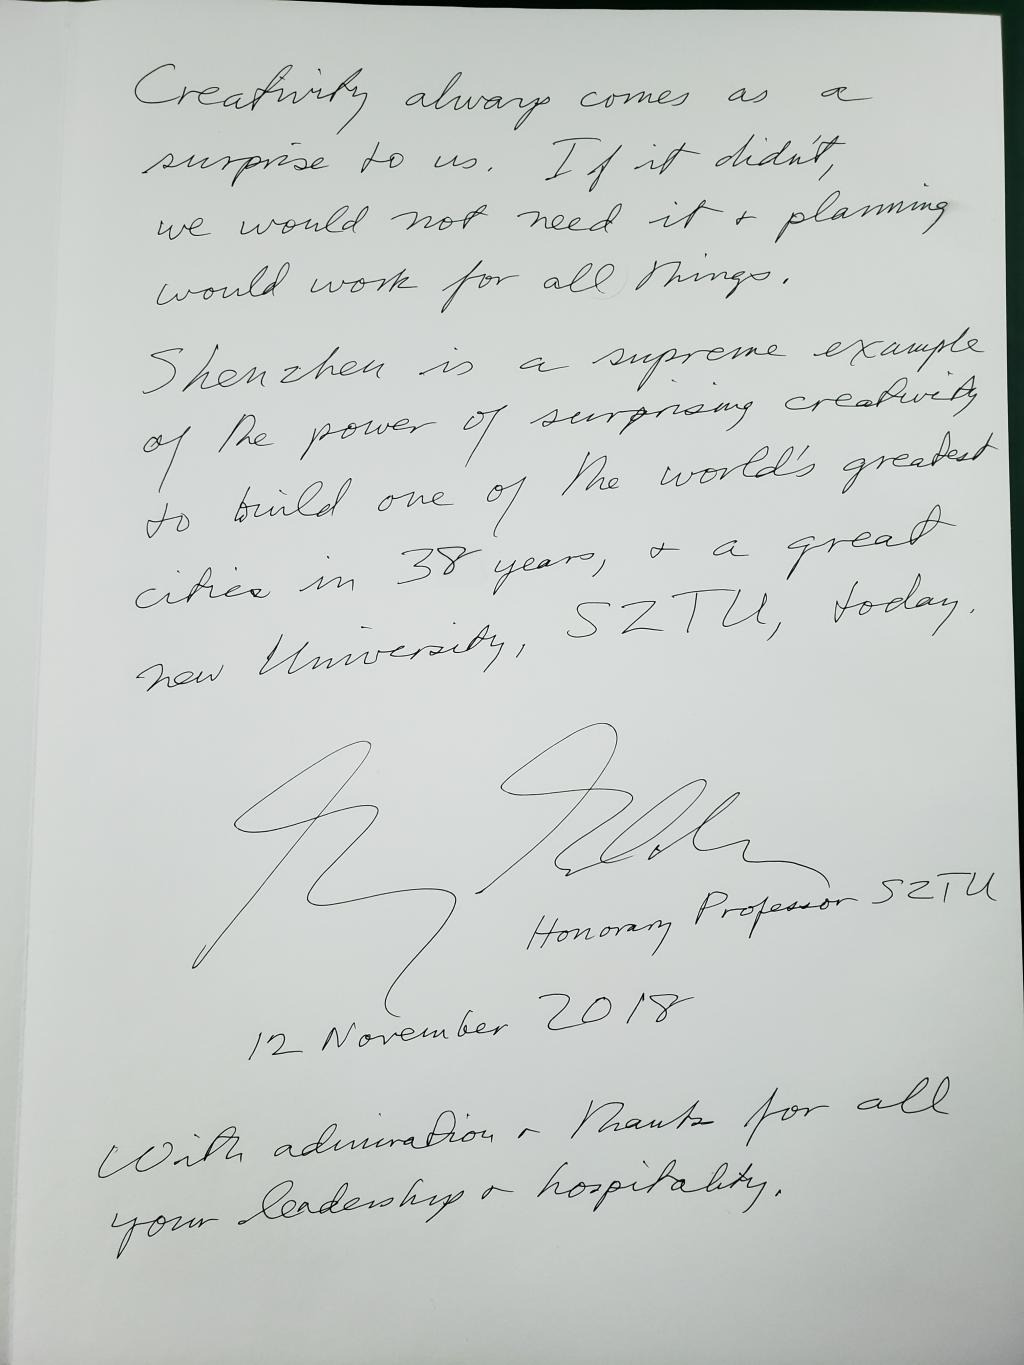 Creativity always comes as a
surprise to us. If it didn't,
we would not need it + planning
would work for all things.
Shenzhen is a supreme example
of the power of surprising creativity
to build one of the world's greatest
cities in 38 years, + a great
new University, SZTU, today.
Honorary Professor SZTU
12 November 2018
With admiration + thanks for all
your leadership + hospitality.